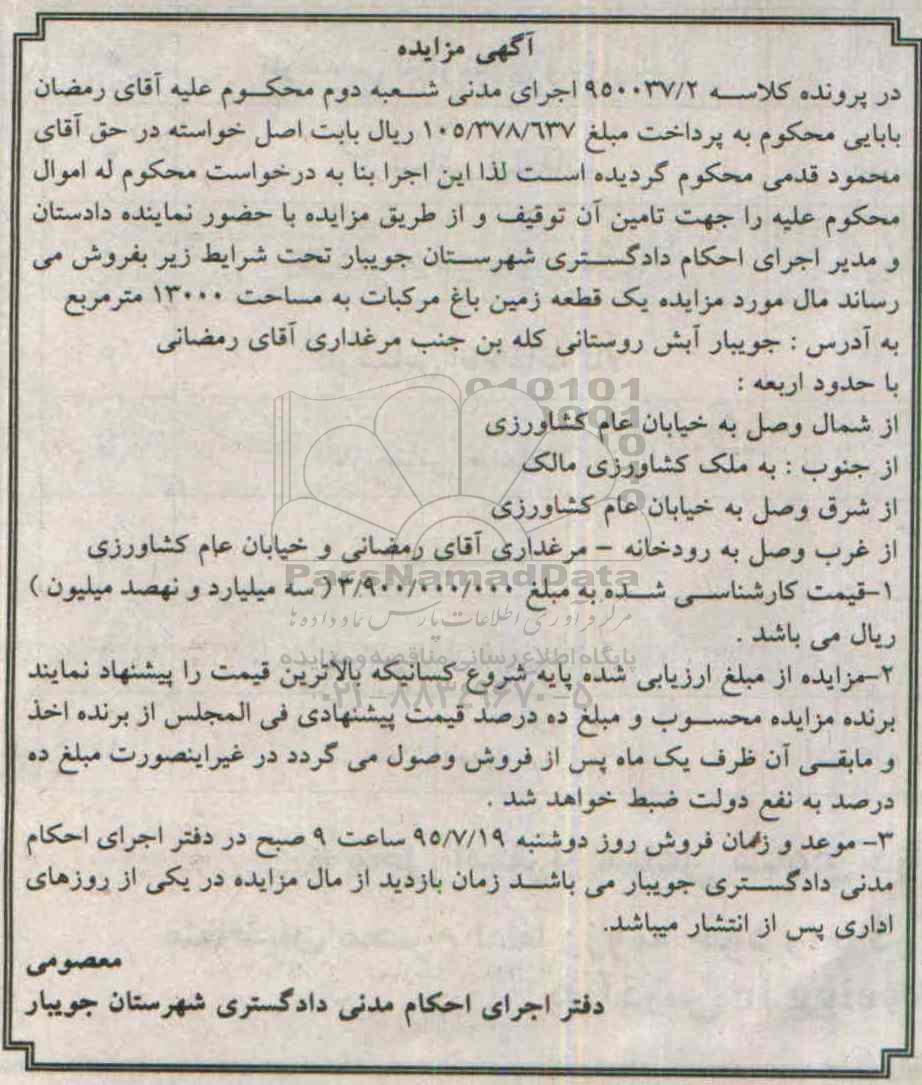 آگهی مزایده
در پرونده کلاسه ۹۵۰۰۳۷/۲ اجرای مدنی شعبه دوم محکوم علیه آقای رمضان
بابایی محکوم به پرداخت مبلغ ۱۰۵/۳۷۸/۶۳۷ ریال بابت اصل خواسته در حق آقای
محمود قدمی محکوم گردیده است لذا این اجرا بنا به درخواست محکوم له اموال
محکوم علیه را جهت تامین آن توقیف و از طریق مزایده با حضور نماینده دادستان
و مدیر اجرای احکام دادگستری شهرستان جویبار تحت شرایط زیر بفروش می
رساند مال مورد مزایده یک قطعه زمین باغ مرکبات به مساحت ۱۳۰۰۰ مترمربع
به آدرس : جویبار آبش روستائی کله بن جنب مرغداری آقای رمضانی
با حدود اربعه :
از شمال وصل به خیابان عام کشاورزی
از جنوب : به ملک کشاورزی مالک
از شرق وصل به خیابان عام کشاورزی
از غرب وصل به رودخانه – مرغداری آقای رمضانی و خیابان عام کشاورزی
ParsNamadData
۱-قیمت کارشناسی شده به مبلغ ۳/۹۰۰/۰۰۰/۰۰۰ ( سه میلیارد و نهصد میلیون )
مرکز فرآوری اطلاعات پارس نماد داده ها
ریال می باشد .
پایگاه اطلاع رسانی مناقصه و مزایده
۲-مزایده از مبلغ ارزیابی شده پایه شروع کسانیکه بالاترین قیمت را پیشنهاد نمایند
۰۲۱-۸۸۳۴۹۶۷۰-۵
برنده مزایده محسوب و مبلغ ده درصد قیمت پیشنهادی فی المجلس از برنده اخذ
و مابقی آن ظرف یک ماه پس از فروش وصول می گردد در غیراینصورت مبلغ ده
درصد به نفع دولت ضبط خواهد شد .
۳- موعد و زمان فروش روز دوشنبه ۹۵/۷/۱۹ ساعت ۹ صبح در دفتر اجرای احکام
مدنی دادگستری جویبار می باشد زمان بازدید از مال مزایده در یکی از روزهای
اداری پس از انتشار میباشد.
معصومی
دفتر اجرای احکام مدنی دادگستری شهرستان جویبار